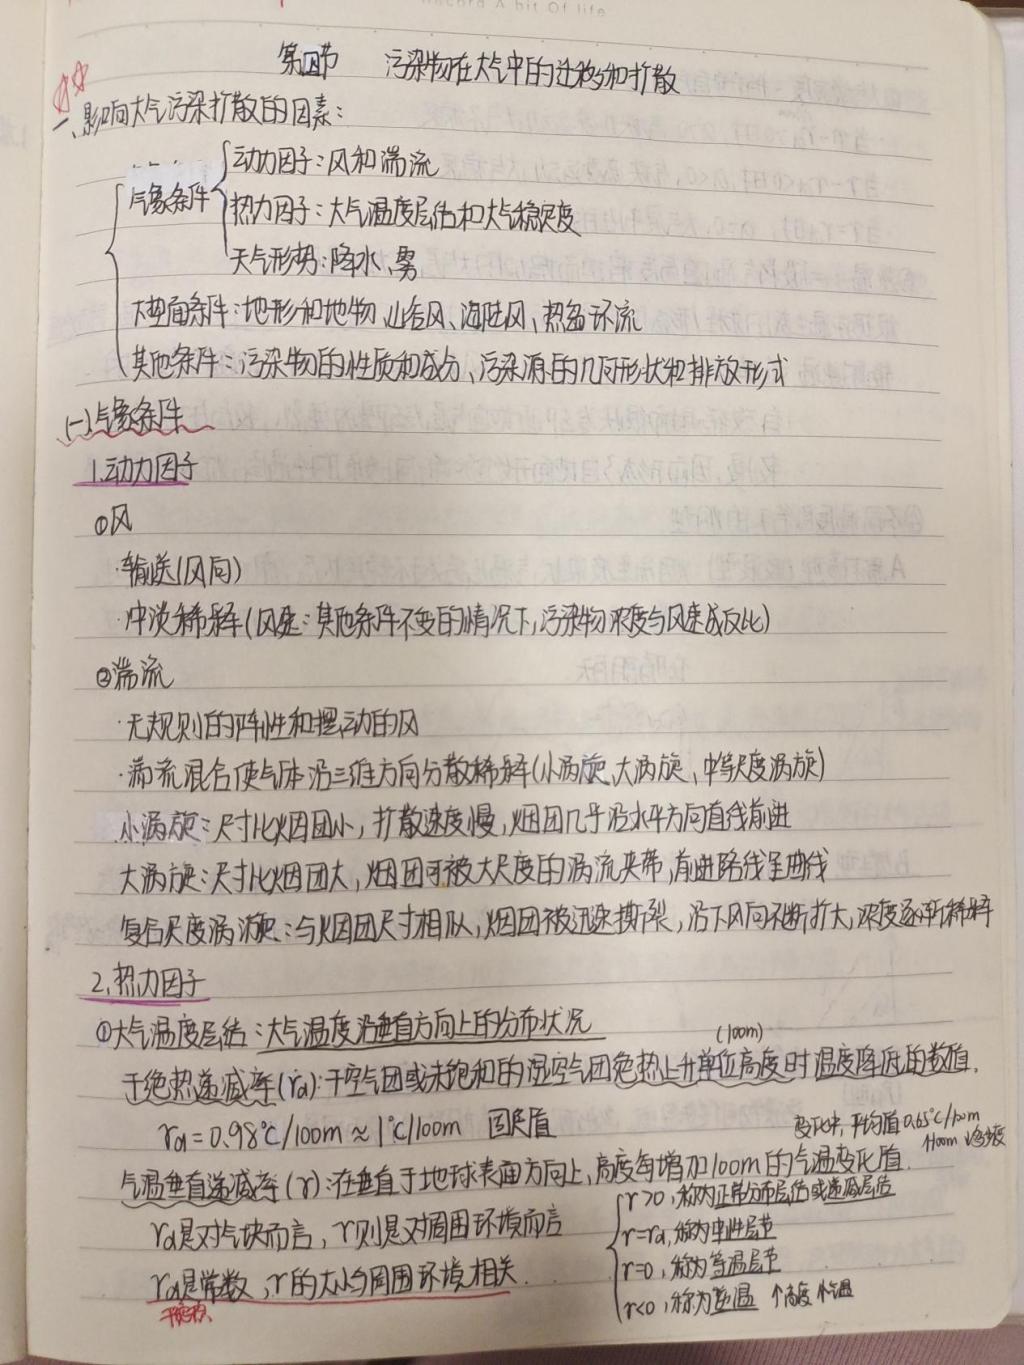 Record A bit Of life
第四节 污染物在大气中的迁移和扩散
一、影响大气污染扩散的因素:
气象条件
动力因子:风和湍流
热力因子:大气温度层结和大气稳定度
天气形势:降水、雾
下垫面条件:地形和地物,山谷风、海陆风,热岛环流
其他条件:污染物的性质和成分、污染源的几何形状和排放形式
(一)气象条件
1.动力因子
①风
·输送(风向)
·冲淡稀释(风速:其他条件不变的情况下,污染物浓度与风速成反比)
②湍流
·无规则的阵性和摆动的风
·湍流混合使气体沿三维方向分散稀释(小涡旋、大涡旋、中等尺度涡旋)
小涡旋:尺寸比烟团小,扩散速度慢,烟团几乎沿水平方向直线前进
大涡旋:尺寸比烟团大,烟团可被大尺度的涡流夹带,前进路线呈曲线
复合尺度涡旋:与烟团尺寸相似,烟团被迅速撕裂,沿下风向不断扩大,浓度逐渐稀释
2.热力因子
①大气温度层结:大气温度沿垂直方向上的分布状况
(100m)
干绝热递减率(rd):干空气团或未饱和的湿空气团绝热上升单位高度时温度降低的数值.
rd=0.98℃/100m≈1℃/100m 固定值
变化中,平均值0.65℃/100m
↑100m ↓0.65度
气温垂直递减率(r):在垂直于地球表面方向上,高度每增加100m的气温变化值.
rd是对气块而言,r则是对周围环境而言
rd是常数,r的大小与周围环境相关.
干绝热
r>0,称为正常分布层结或递减层结
r=rd,称为中性层节
r=0,称为等温层节
r<0,称为逆温 ↑高度 ↑温